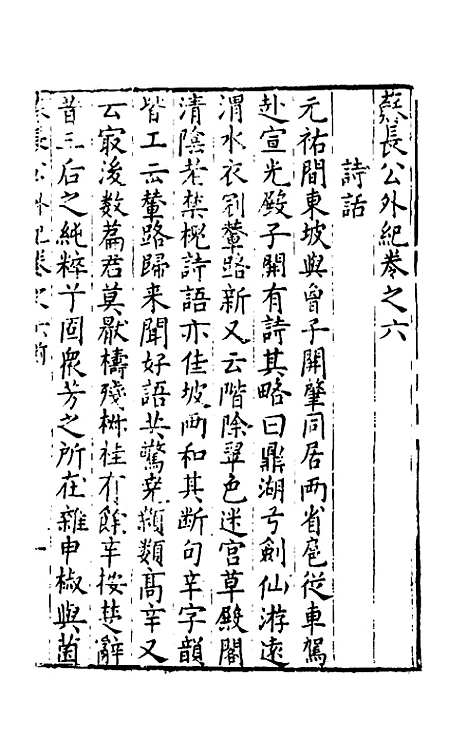 蘇長公外紀卷之六
詩話
元祐間東坡與曾子開肇同居兩省扈從車駕
赴宣光殿子開有詩其略曰鼎湖弓劍仙游遠
渭水衣冠輦路新又云階除翠色迷宫草殿閣
清陰老禁槐詩語亦佳坡兩和其断句辛字韻
皆工云輦路歸来聞好語共驚堯顙類髙辛又
云最後数篇君莫厭擣殘椒桂有餘辛按楚辭
昔三后之純粹兮固衆芳之所在雜申椒與菌